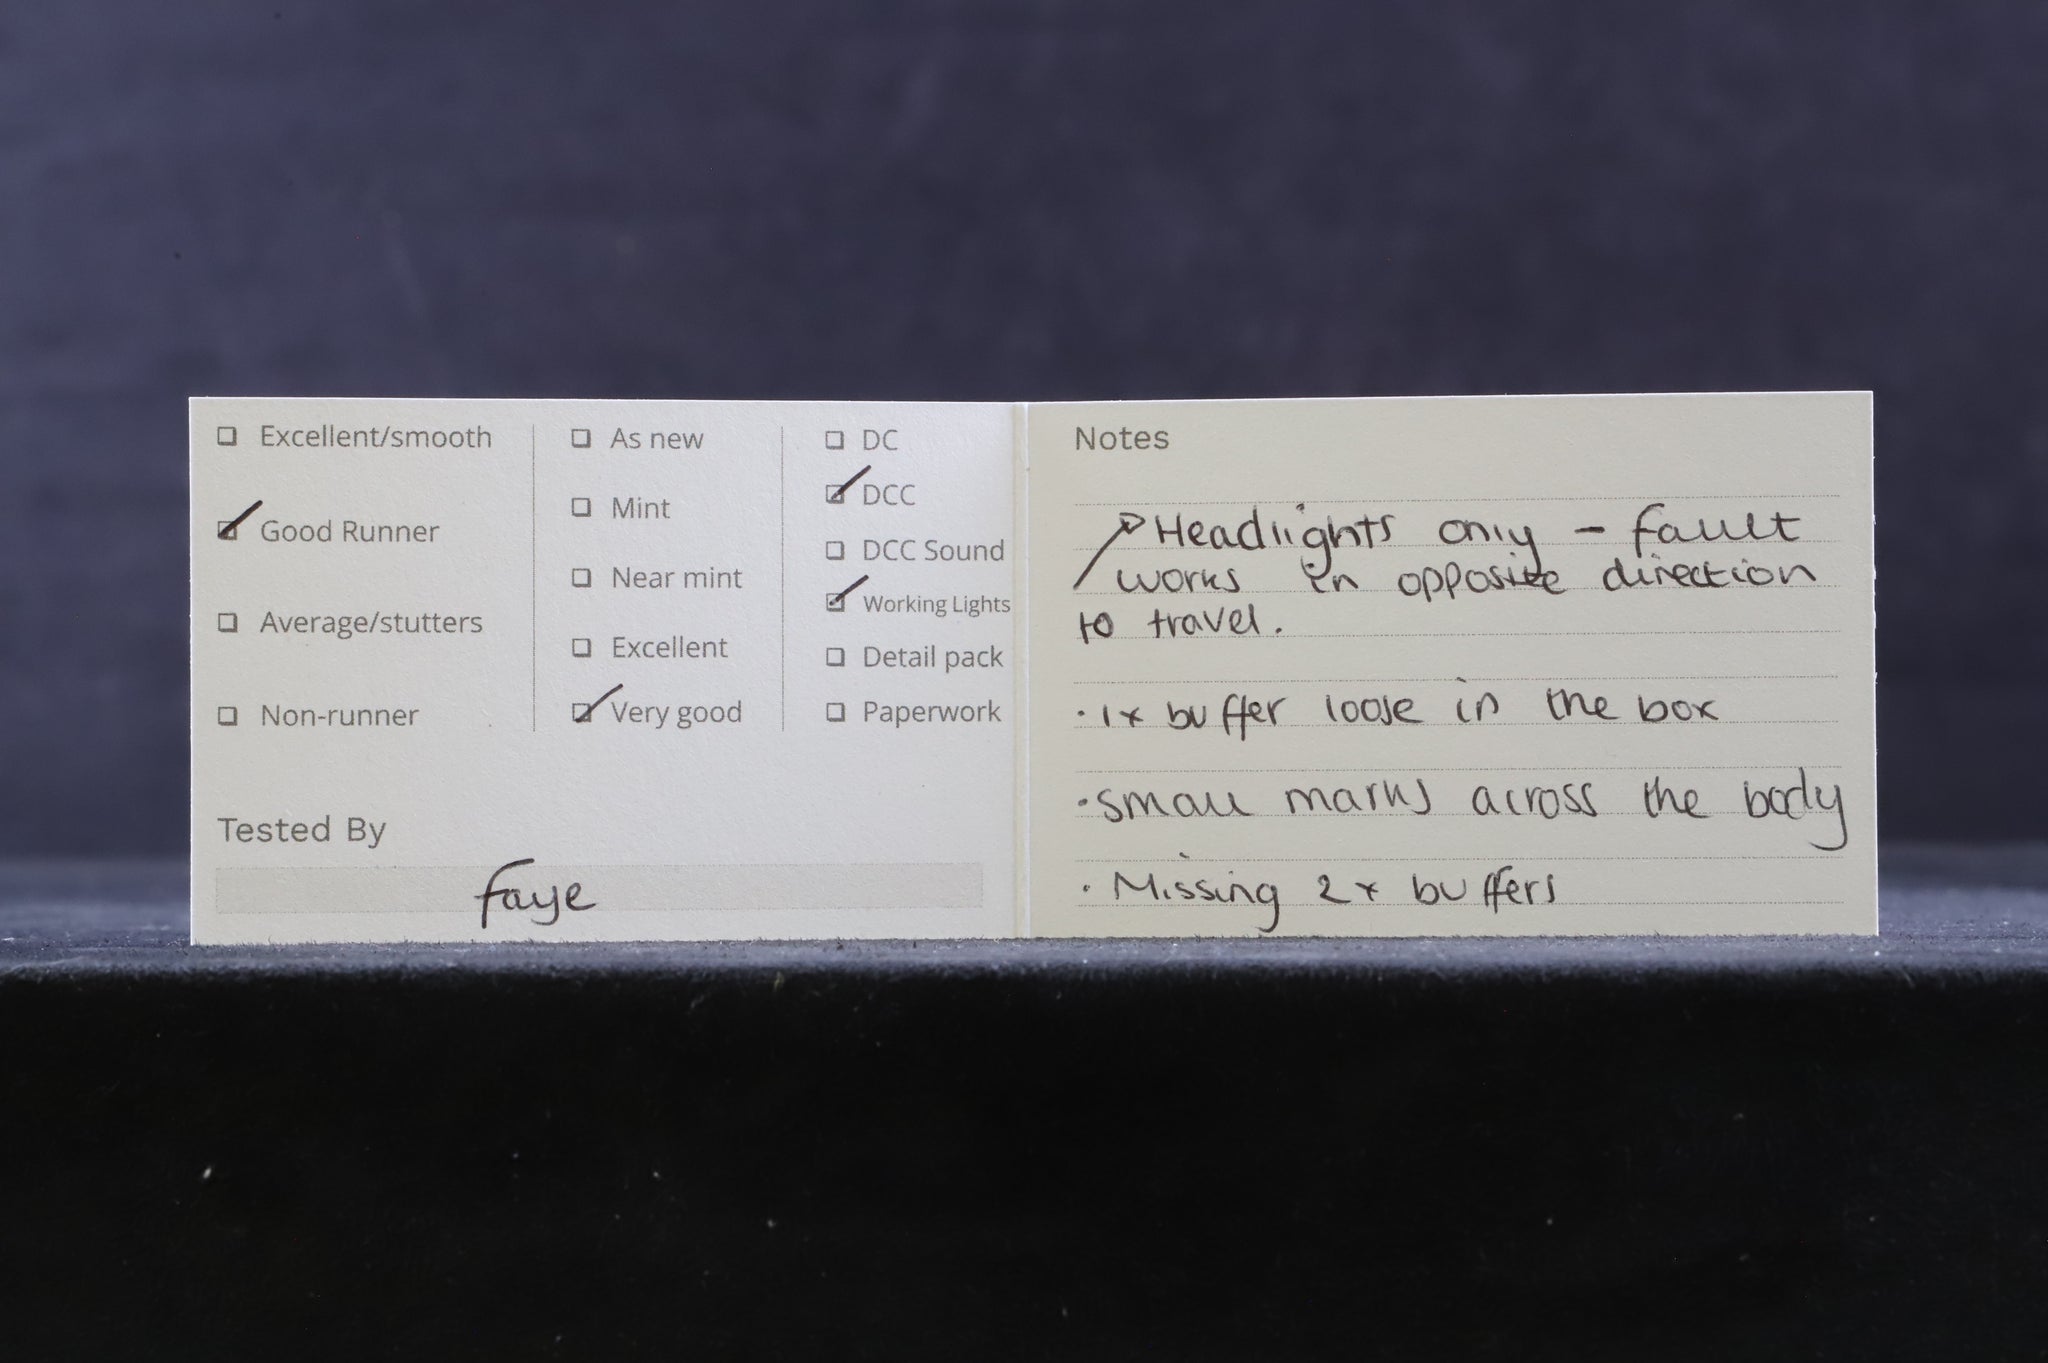 Excellent/smooth
Good Runner
Average/stutters
Non-runner
As new
Mint
Near mint
Excellent
Very good
DC
DCC
DCC Sound
Working Lights
Detail pack
Paperwork
Tested By
faye
Notes
Headlights only - fault
works in opposite direction
to travel.
· 1x buffer loose in the box
· small marks across the body
· Missing 2x buffers